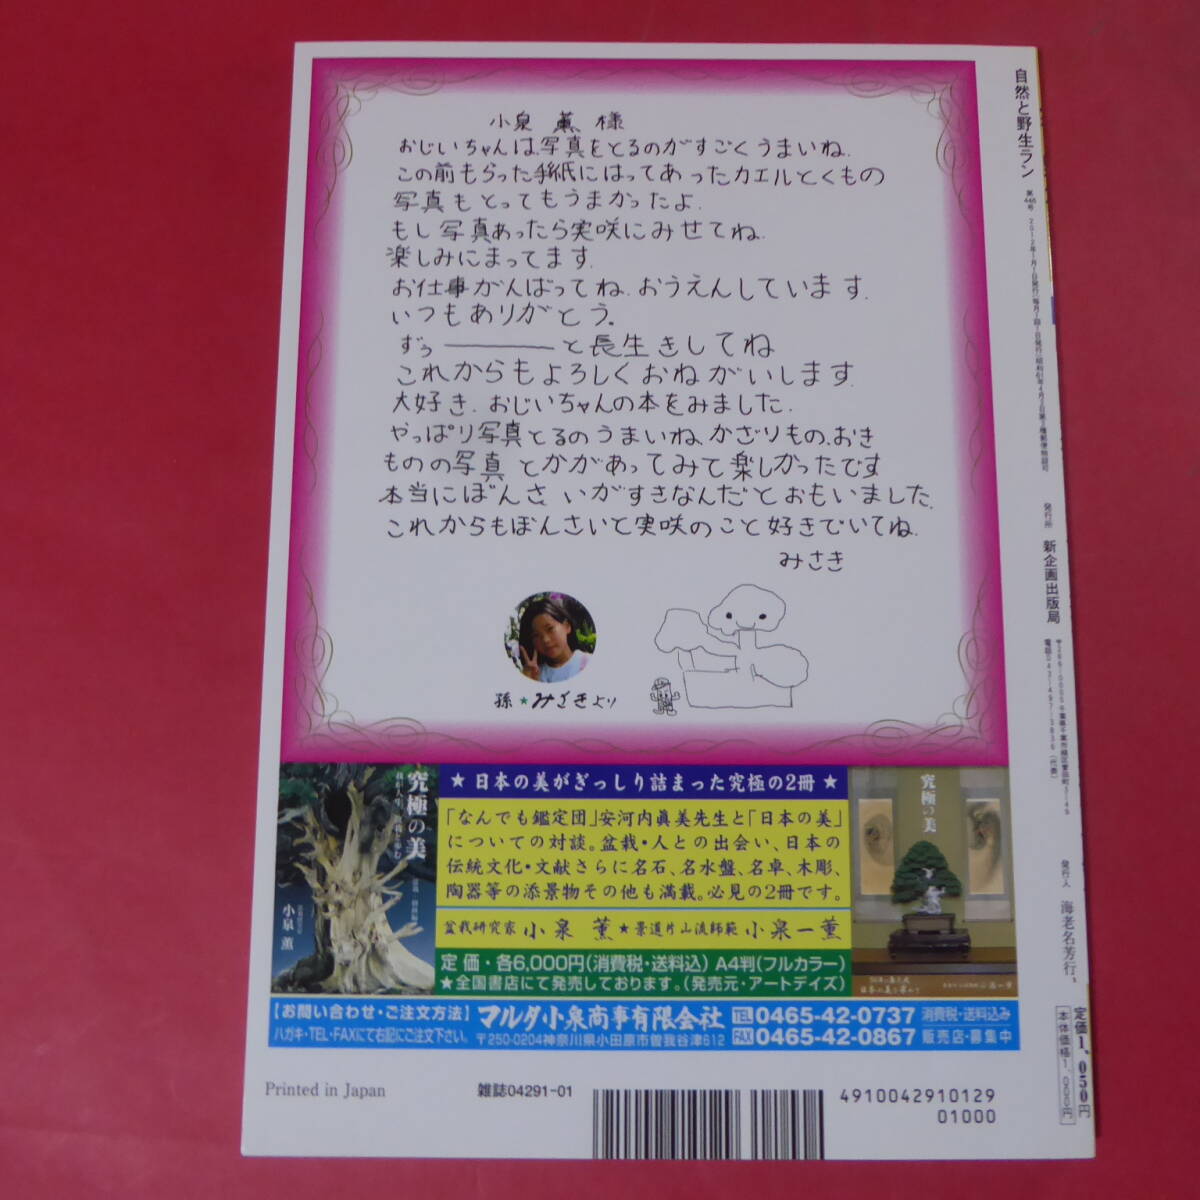 小泉 薫 様
おじいちゃんは、写真をとるのがすごくうまいね。
この前もらった手紙にはってあったカエルとくもの
写真もとってもうまかったよ。
もし写真あったら実咲にみせてね。
楽しみにまってます。
お仕事がんばってね。おうえんしています。
いつもありがとう。
ずぅ――――と長生きしてね
これからもよろしくおねがいします。
大好き。おじいちゃんの本をみました。
やっぱり写真とるのうまいね。かざりもの、おき
ものの写真とかがあってみて楽しかったです
本当にぼんさいがすきなんだとおもいました。
これからもぼんさいと実咲のこと好きでいてね。
みさき
孫★みさきより
★日本の美がぎっしり詰まった究極の2冊★
「なんでも鑑定団」安河内眞美先生と「日本の美」
についての対談。盆栽・人との出会い、日本の
伝統文化・文献さらに名石、名水盤、名卓、木彫、
陶器等の添景物その他も満載。必見の2冊です。
盆栽研究家 小泉 薫★景道片山流師範 小泉一薫
定価・各6,000円(消費税・送料込) A4判(フルカラー)
★全国書店にて発売しております。(発売元・アートデイズ)
究極の美
小泉 薫
究極の美
【お問い合わせ・ご注文方法】
ハガキ・TEL・FAXにて右記にご注文下さい。
マルダイ小泉商事有限会社
〒250-0204神奈川県小田原市曽我谷津612
TEL 0465-42-0737
FAX 0465-42-0867
消費税・送料込み
販売店・募集中
Printed in Japan
雑誌04291-01
4910042910129
01000
自然と野生ラン
発行所 新企画出版局
発行人 海老名芳行
定価1,050円
本体価格1,000円